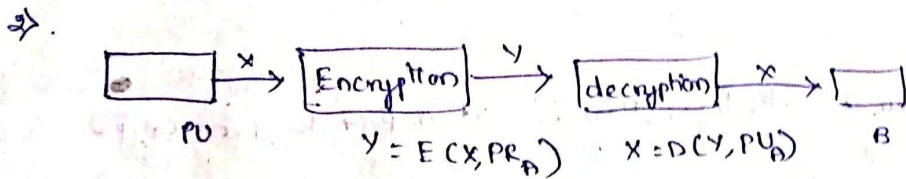 2).
X Encryption Y decryption X
PU Y = E(X,PR_A) X = D(Y,PU_A) B